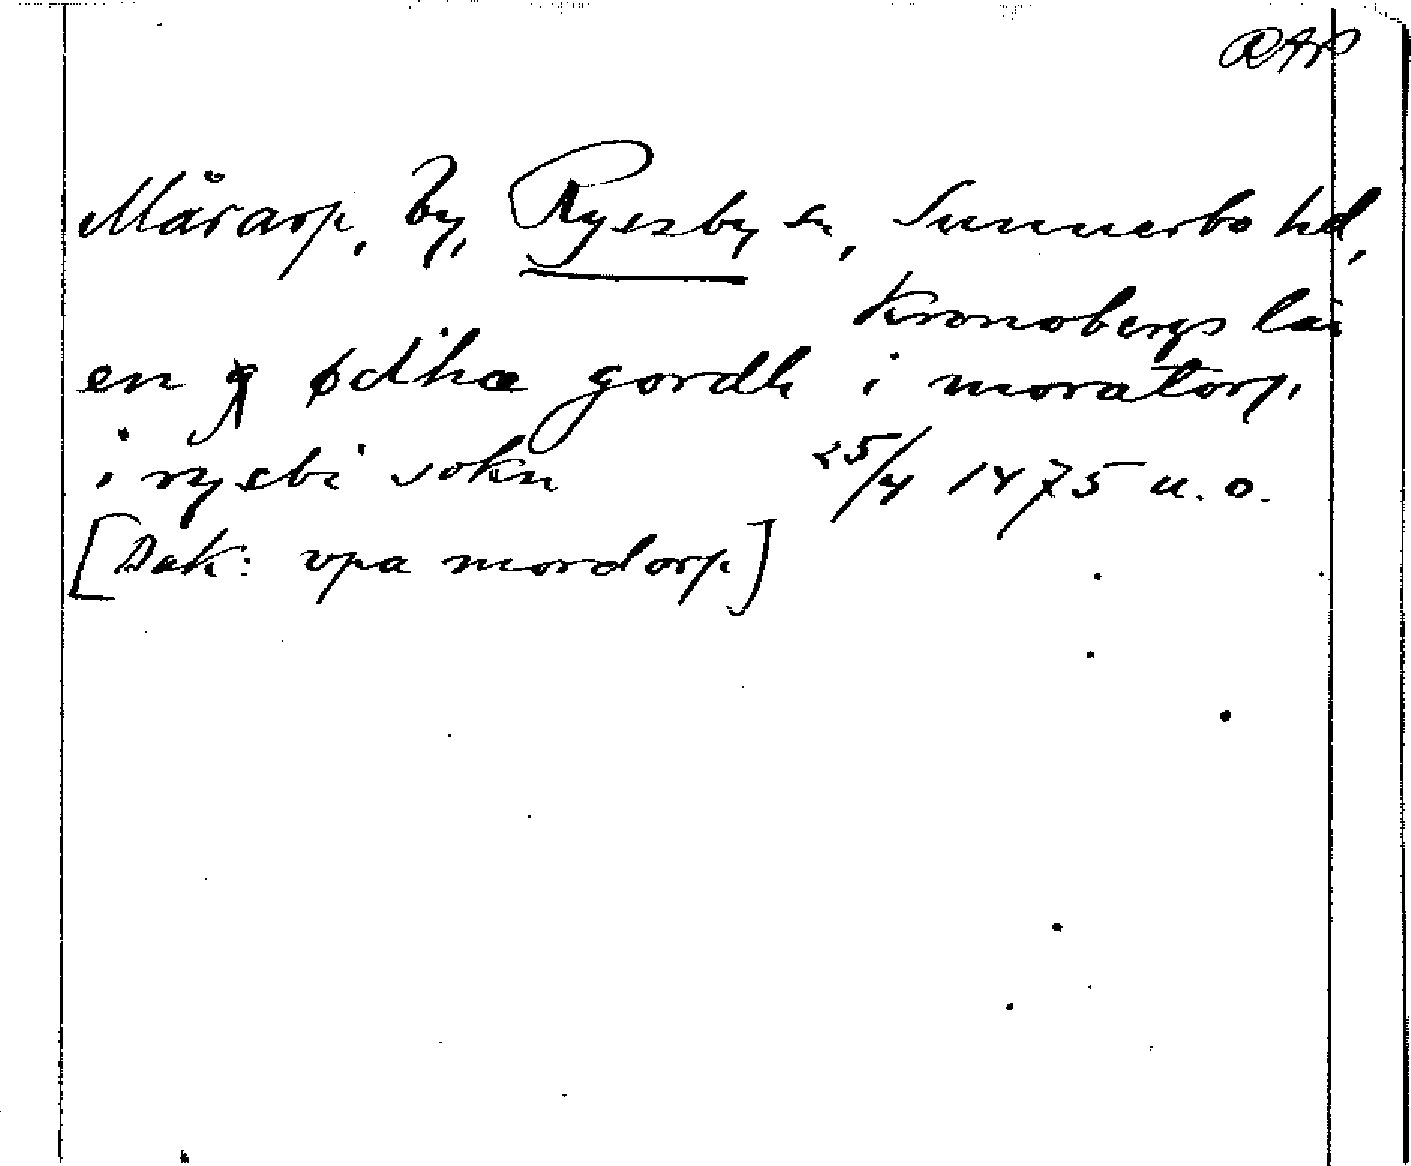 RAP
Mårarp, by, Ryssby sn, Sunnerbo hd,
Kronobergs län
en ødhæ gordh i moratorp
i rysbi sokn 25/4 1475 u. o.
[Dok: vpa mordorp]